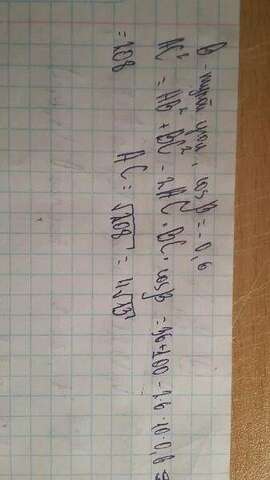 B - тупой угол, cos B = -0,6
AC² = AB² + BC² - 2AC · BC · cos B = 36+100 - 2 · 
=208 AC = √208 = 4√13